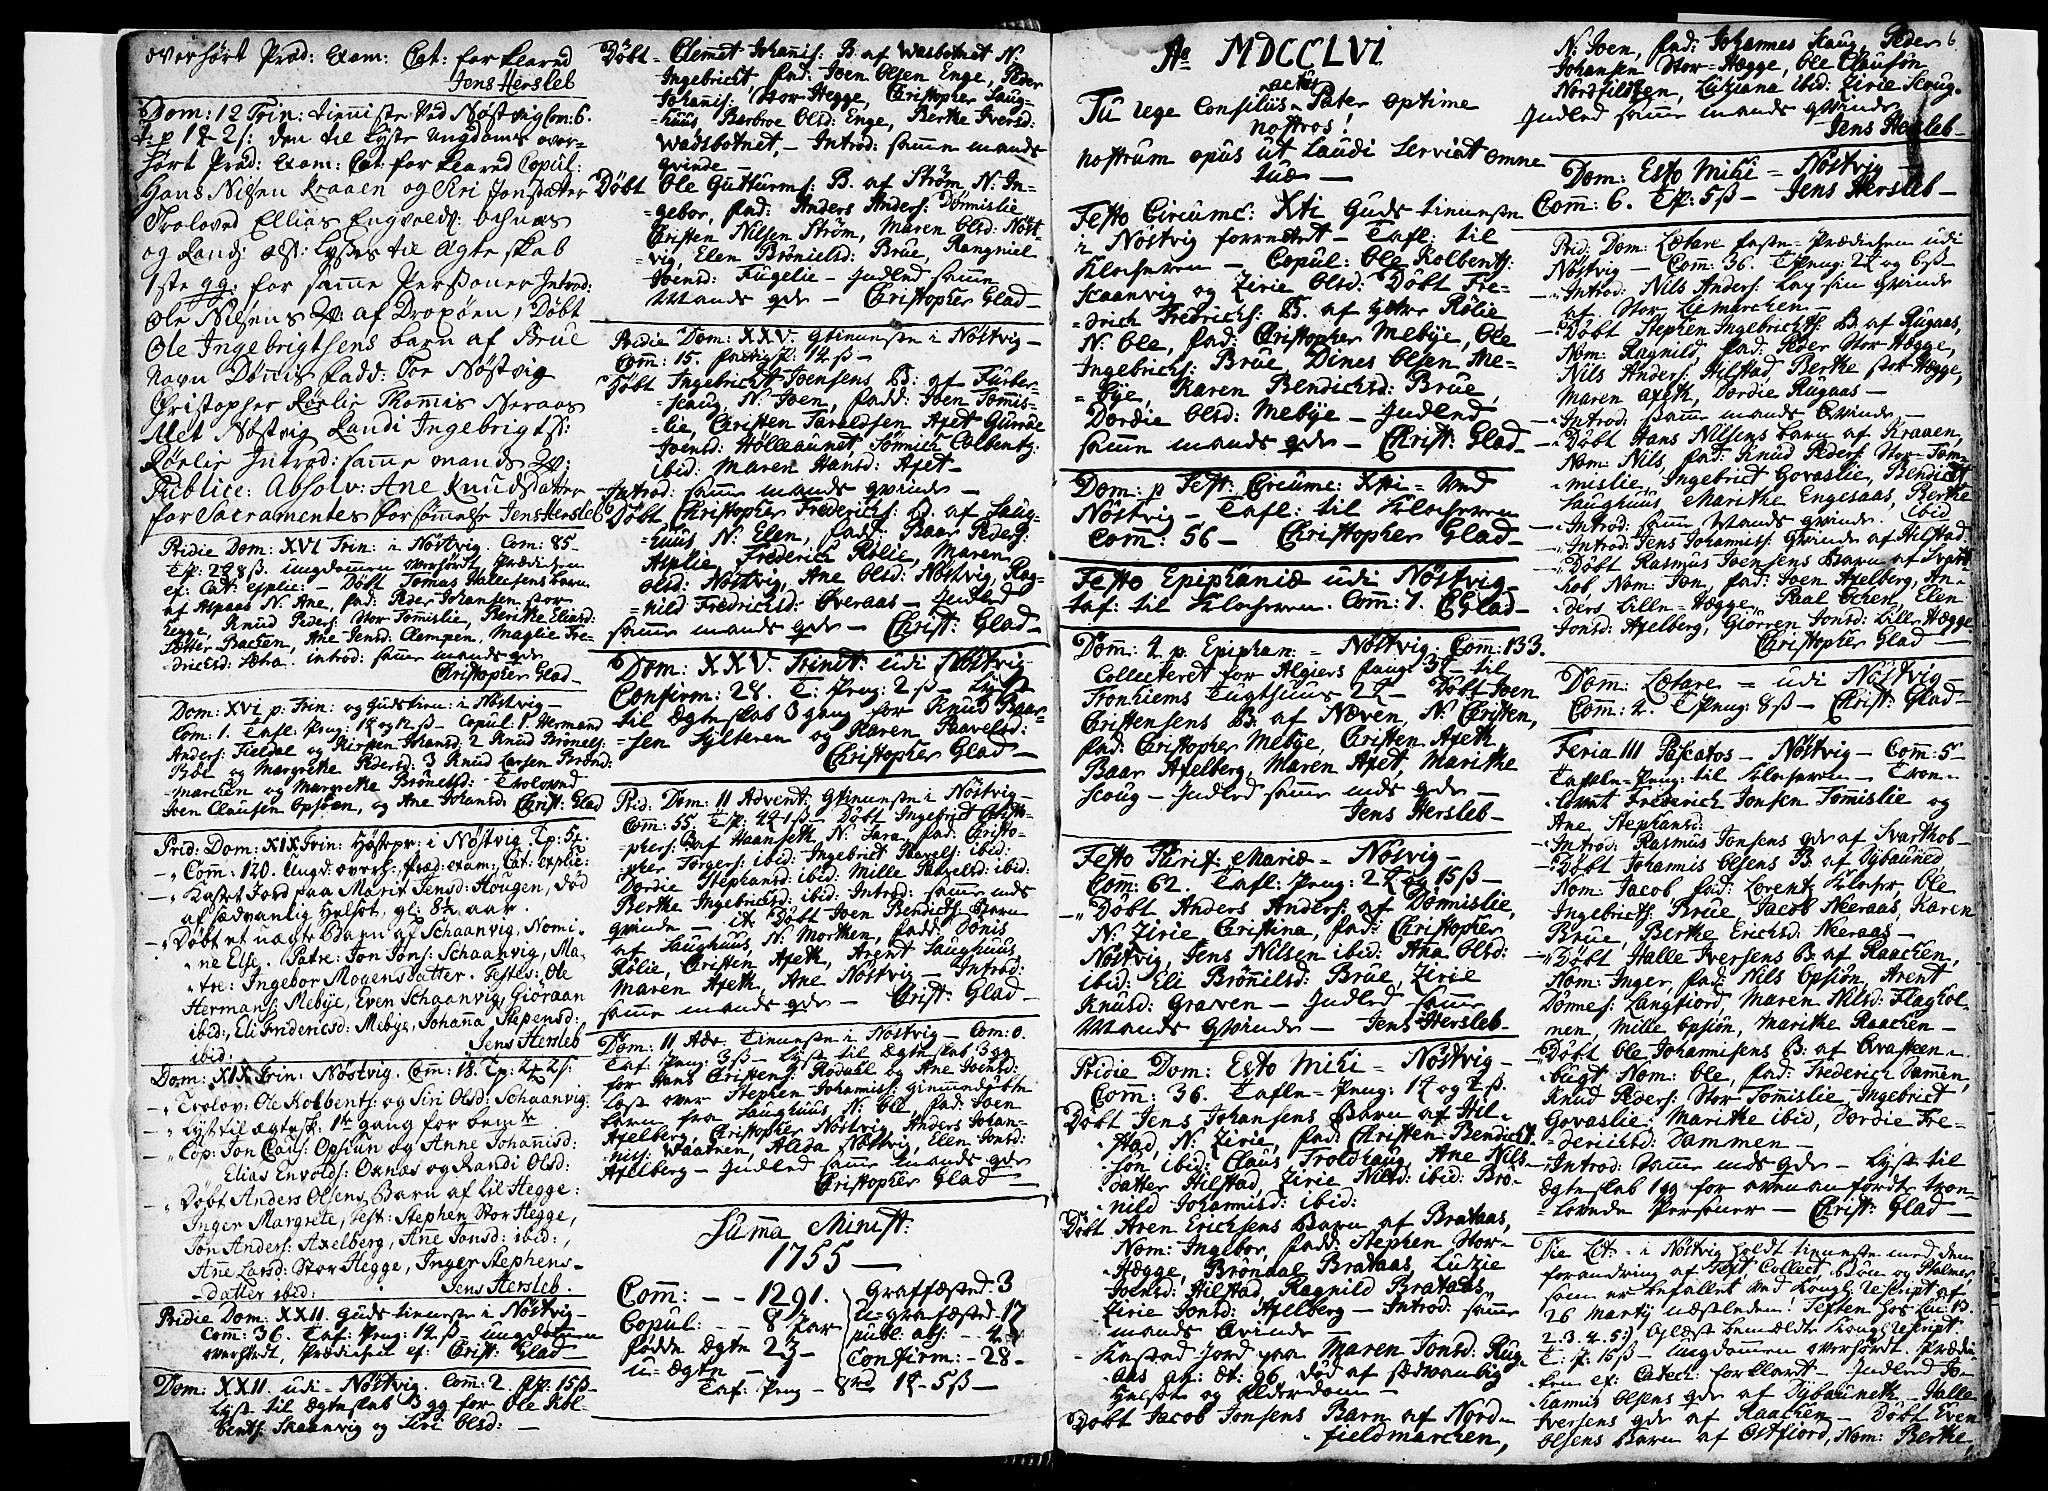 overhørt Præd: Exam: Cat: forklared
Jens Hersleb
Dom: 12 Trin: tienniste Ved Nøstvig Com: 6.
ungdoms over-
hørt Præd: Exam: Cat: forklared Copul:
Hans Nilsen Kraaen og Siri Jonsdatter
Troloved Ellias Engvolds: ochnæs
og Randj olss: Lystes til Ægteskab
1ste gg: for samme Personer Introd:
Ole Nilsens Qv: af Dropøen, Døbt
Ole Ingebrigtsens barn af Brue
Navn Dønnis fadd: Tor Nøstvig
Christopher Rørlie Thomis Neraas
Alet Nøstvig Randi Ingebrigtsd:
Rørlie Introd: samme mands Qv:
Publice: Absolv: Ane Knudsdatter
for Sacramentes forsømmelse Jens Hersleb
Pridie Dom: XVI Trin: i Nøstvig. Com: 85-
ungdommen overhørdt Prædichen
ef: Cat: explic: - Døbt Tomas Hallesens barn
af Aspaas N. Ane, fad: Peder Johansen stor
Hegge, Knud Peders: Stor Tomislie, Berithe Eliasd:
Bachen, Ane Jensd: Clempen, Maglie Fre-
drichsd: Sætra. introd: samme mands qde
Christopher Glad-
Dom: XVI p: Trin: og Gudstien: i Nøstvig-
Com: 1. Tafl: Peng: 1 og 12 ß - Copul: 1. Herman
Anders: Fieldal og Kirsten Johansd: 2 Knud Brønels:
Bøe og Margrethe Pedersd: 3 Knud Larsen Brønd:
marchen og Margrethe Brønelsd: - Trolovend
Joen Clausen Opsøen, og Ane Johansd: Christ: Glad
Prid: Dom: XIX Trin: Høstpr: i Nøstvig. Tp: 5
Com: 120. Ungd: overh: præd: exam: Cat: explic:
Kastet Jord paa Marit Jensd: Hougen, død
af sædvanlig Helsot, gl: 8½ aar.
Døbt et uægte Barn af Schaanvig, Nomi-
ne Else. Patre: Jon Jons: Schaanvig, Ma-
tre: Ingebor Mogensdatter. Testes: Ole
Hermans: Mebye, Even Schaanvig, Giøraan
ibid: Eli Fridericsd: Mebye, Johanna Stepensd:
ibid: Jens Hersleb
Dom: XIX Trin: Nøstvig. Com: 18. Tp:
Trolov: Ole Kolbents: og Siri Olsd: Schaanvig.
Lyst til ægtesk: 1te gang for bemte
Cop: Jon Claus: Opsiun og Anne Johanisd:
Elias Envolds: Oxnas og Randi Olsd:
Døbt Anders Olsens Barn af Lil Hegge:
Inger Margrete, Test: Stephen Stor Hegge,
Jon Anders: Axelberg, Ane Jonsd: ibid:,
Anne Larsd: Stor Hegge, Inger Stephens-
datter ibid: Jens Hersleb.
Pridie Dom: XXII. Guds tieneste i Nøstvig-
Com: 36. Taf: Peng: 12 ß - ungdommen
overhørdt, Prædichet ef: Christ: Glad-
Dom: XXII. udi - Nøstvig. Com: 2 15 ß-
Lyst til ægteskab 3 gg for Ole Kol-
bents: Skaanvig og Siri Olsd: -
Døbt - Clemet Johanis: B. af Wasbotnet N.
Ingebricht, fad: Joen Olsen Enge, Peder
Johanis: Stor Hegge, Christopher Laug-
huus, Barbroe Olsd: Enge, Berthe Iversd:
Wadsbotnet, - Introd: samme mands
qvinde -
Døbt Ole Gutturms: B. af Strøm, N: In-
gebor, fad: Anders Anders: Dønnislie
Christen Nilsen Strøm, Maren Olsd: Nøst-
vig Elen Brønielsd: Brue, Rangniel
Joensd: Fugelie - Indled samme
Mands qde - Christopher Glad-
Pridie Dom: XXV. Gtienesten i Nøstvig-
Com: 15.
Døbt Ingebricht Joensens B: af Furber-
scaug N: Joen, fadd: Joen Tomis-
lie, Christen Taraldsen Axet Gurroe
Joensd: Hølleaunet, Tønnich Colbents:
ibid: Maren Hansd: Axet-
Introd: samme mands qvinde -
Døbt Christopher Frederichs: B. af Laug-
huus N: Elen, fadd: Baar Peders:
Asplie, Frederich Rølie, Maren
Olsd: Nøstvig, Ane Olsd: Nøstvig, Rag-
nild Fredrichsd: Overaas - Indled
samme mands qde - Christ: Glad-
Dom: XXV. Trinit: udi Nøstvig-
Confirm: 28. T: Peng: 2 ß - Lyst
til Ægteskab 3 gang for Knud Baar-
sen Sylteren og Karen Paavelsd:
Christopher Glad-
Prid: Dom: II Advent: Gtienesten i Nøstvig-
Com: 55 Døbt Ingebrict Christo-
phers: B af Haanseth N: Sara, fad: Christo-
pher Torgers: ibid: Ingebrict Paavels: ibid:
Dordie Stephansd: ibid: Mille Paavelsd: ibid:
Berthe Ingebrichtsd: ibid: Introd: samme mds
qvinde - it: Døbt Joen Bendichts: Barn
af Laughuus, N: Morthen, fadd: Dønis
Rølie, Christen Axeth, Arent Laughuus
Maren Axeth, Ane Nøstvig - Introd:
samme mands qde - Christ: Glad-
Dom: II Adv. Tienesten i Nøstvig - Com: 0.
Taf: Peng: 3 ß - Lyst til ægteskab 3 gg
for Hans Christens: Rødahl og Ane Joensd:
Læst over Stephen Johanis: giemmedøbte
barn fra Laughuus N: Ole, fad: Joen
Axelberg, Christopher Nøstvig, Anders Johan-
nis: Waatnen, Alida Nøstvig, Elen Jonsd:
Axelberg - Indled samme mands qde
Christopher Glad-
Suma Minist:
1755-
Com: - - 1291. Graffæsted. 3
Copul: - - 8 par U-grafæsted. 17
fødde Ægte 23 publ: abs: - 4
u: ægte - Confirm: - 28-
Taf: Peng - 8rd 1 - 5 ß -
Ao MDCCLVI
actus
Tu rege Consiliis Pater optime
nostros!
nostrum opus ut Laudi Serviat omne
tuæ -
Festo Circumc: Xti Guds tienesten
i Nøstvig forrettet - Tafl: til
Klocheren - Copul: Ole Kolbents:
Scaanvig og Zirie Olsd: Døbt Fre-
drich Fredrichs: B. af yttre Rølie
N: Ole, fad: Christopher Mebye, Ole
Ingebrichs: Brue, Dines Olsen Me-
bye, Karen Bendichsd: Brue,
Dordie Olsd: Mebye - Indled
samme mands qde - Christ: Glad-
Dom: p Fest: Circumc: Xti - Ved
Nøstvig - Tafl: til Klocheren
Com: 56 - Christopher Glad-
Festo Epiphaniæ udi Nøstvig-
taf: til Klocheren. Com: 1. C Glad-
Dom: 4 p. Epiphan: - Nøstvig. Com: 133.
Collecteret for Algiers fang: 3 til
Tronhiems Tugthuus 2 - Døbt Joen
Christensens B: af Næven, N: Christen,
fad: Christopher Mebye, Christen Axeth
Baar Axelberg, Maren Axet, Marithe
Scoug - Indled samme mds qde -
Jens Hersleb-
Festo Purif: Mariæ - Nøstvig-
Com: 62. Tafl: Peng: 2 og 15 ß-
Døbt Anders Anders: af Dønnislie,
N: Zirie Christina, fad: Christopher
Nøstvig, Jens Nilsen ibid: Ana Olsd:
ibid: Eli Brønnilsd: Brue, Zirie
Knusd: Graven - Indled samme
Mands Qvinde - Jens Hersleb-
Pridie Dom: Esto Mihi - Nøstvig-
Com: 36. Tafle-Peng: 1 og ß.
Døbt Jens Johansens Barn af Hil-
stad, N: Zirie, fad: Christen Bendicht-
søn ibid: Claus Troldhaug, Ane Nils-
datter Hilstad, Zirie Nilsd: ibid: Brø-
nild Johanisd: ibid:
Døbt Aren Erichsens Barn af Brataas,
Nom: Ingebor, fadd: Stephen Stor-
Hægge, Brøndal Brataas, Ludzie
Joensd: Hilstad Ragnild Brataas
Zirie Jonsd: Axelberg - Introd: samme
mands Qvinde -
Kasted Jord paa Maren Jonsd: Rug-
aas æt: 96, død af sædvanlig
Helsot og Alderdom -
Døbt Jacob Jonsens Barn af Nord-
fieldmarchen,
6
N: Joen, fad: Johannes Scaug Peder
Johansen Stor-Hægge, Ole Clausøn
Nordfildtzen, Lutziana ibid: Zirie Scoug.
Indled samme mands Qvinde
Jens Hersleb-
Dom: Esto Mihi - Nøstvig
Com: 6. Tp: 5 ß - Jens Hersleb-
Prid: Dom: Lætare faste-Prædichen udi
Nøstvig - Com: 36. T Peng: 2 og 6 ß-
Introd: Nils Anders: Lapsin Qvinde
af Stor Lismarchen.
Døbt Stephen Ingebrichts: B. af Rugaas,
Nom: Ragnild, fad: Peder Stor Hægge,
Nils Anders: Hilstad, Berthe stor Hægge,
Maren Axeth, Dordie Rugaas -
Introd: samme mands Qvinde, -
Døbt Hans Nilsens barn af Kraaen,
Nom: Nils, fad: Knud Peders: Stor-Tom-
mislie, Ingebrict Govaslie, Bendicht
Laughuus Marithe Engesaas, Berthe
ibid
Introd: samme Mands qvinde.
Introd: Jens Johannis: Qvinde af Hilstad.
Døbt Rasmus Joensens Barn af Svart
hob, Nom: Jon, fad: Joen Axelberg, An-
ders Lille-Hægge, Paal Ochen, Elen
Jonsd: Axelberg, Giørren Jonsd: Lille Hægge
Christopher Glad-
Dom: Lætare - udi Nøstvig-
Com: 4. T Peng: 8 ß - Christ: Glad-
Feria III Pascatos - Nøstvig - Com: 5-
Tafele-Peng: til Klocheren - Trou-
lovet Frederich Jonsen Tommislie og
Ane Stephansd:
Introd: Rasmus Jonsens qde af Svarthob-
Døbt Johannis Olsens B. af Dybauned
Nom: Jacob fad: Lorentz Klocher, Ole
Ingebricts: Brue, Jacob Neeraas, Karen
Brue, Berthe Erichsd: Neeraas -
Døbt Halle Iversens B. af Raachen,
Nom: Inger, fad: Nils Opsiøn, Arent
Dønnes: Langfiord, Maren Nilsd: Flaghol-
men, Mille Opsiøn, Marithe Raachen -
Døbt Ole Johannisens B: af Qvasteen-
bugt Nom: Ole, fad: Frederich Dammen,
Knud Peders: Stor Tommislie, Ingebrict
Govaslie, Marithe ibid, Dordie Fre-
derichsd: Dammen -
Introd: samme mds qde - Lyst til
Ægteskab 1 gg for ovenanførdte trou-
lovede Personer - Christ: Glad-
Die Lit: - i Nøstvig holdt tieneste med den
forandring af Text, Collect, Bøn og Psalmer
som er befallet ved Kongl: rescript af
26 Martij næstleden: Texten hos Luc: 13.
2. 3. 4. 5: oplæst bemældte Kongl: rescript.
T: P: 15 ß - ungdommen overhørdt. Prædi-
ken ef: Catech: forklardt - Indled Jo-
hannis Olsens qde af Dybauneth - Halle
Iversens qde af Raachen - Døbt Even
Olsens Barn af Ostfiord, Nom: Berthe